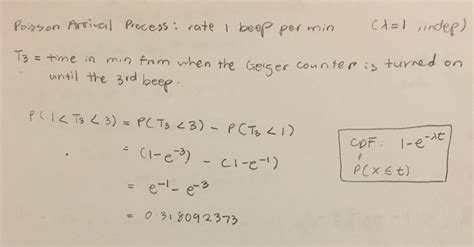 Poisson Arrival Process: rate 1 beep per min (λ=1, indep)
T3 = time in min from when the Geiger counter is turned on
until the 3rd beep.
P(1<T3<3) = P(T3<3) - P(T3<1)
= (1-e^-3) - (1-e^-1)
= e^-1 - e^-3
= 0.318092373
CDF: 1-e^-λt
P(X≤t)